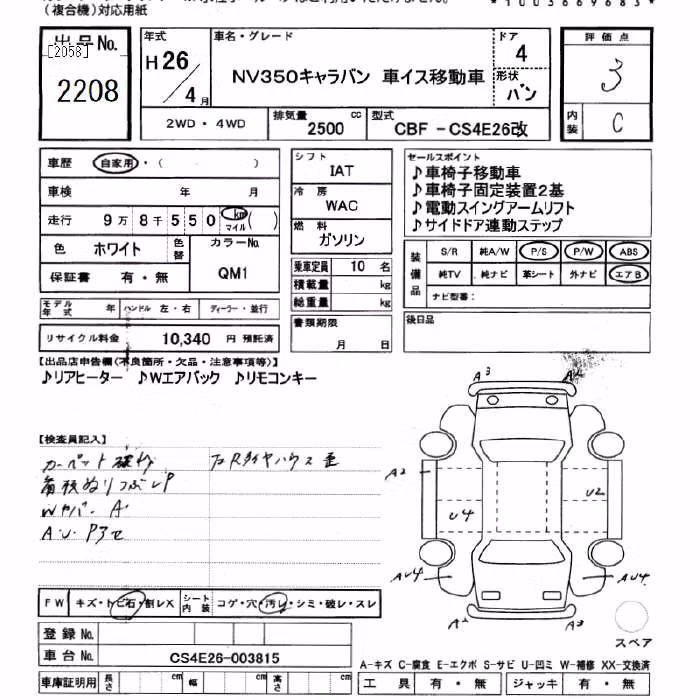 (複合機)対応用紙
*1003669683*
出品No. [2058] 2208
年式 H26/4月
車名・グレード NV350キャラバン 車イス移動車
ドア 4
形状 バン
評価点 3
内装 C
2WD・4WD 排気量 2500 cc 型式 CBF-CS4E26改
車歴 自家用・( )
車検 年 月
走行 9万8千550 km マイル ( )
色 ホワイト 色替 カラーNo. QM1
保証書 有・無
シフト IAT
冷房 WAC
燃料 ガソリン
乗車定員 10 名
積載量 kg
総重量 kg
書類期限 月 日
セールスポイント
♪車椅子移動車
♪車椅子固定装置2基
♪電動スイングアームリフト
♪サイドドア連動ステップ
装備品 S/R 純A/W P/S P/W ABS
純TV 純ナビ 革シート 外ナビ エアB
ナビ型番:
後日品
モデル年式 年 ハンドル 左・右 ディーラー・並行
リサイクル料金 10,340 円 預託済
【出品店申告欄(不良箇所・欠品・注意事項等)】
♪リアヒーター ♪Wエアバック ♪リモコンキー
【検査員記入】
カーペット
Wカバー A
A.U.
A3
A2
U2
U4
AU4 AU4
A2 A3
スペア
FW キズ・トビ石・割レX シート内装 コゲ・穴・汚レ・シミ・破レ・スレ
登録No.
車台No. CS4E26-003815
車庫証明用 長さ cm 幅 cm 高さ cm
A-キズ C-腐食 E-エクボ S-サビ U-凹ミ W-補修 XX-交換済
工具 有・無 ジャッキ 有・無